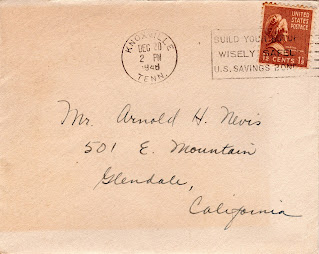 KNOXVILLE
DEC 30
2 PM
1948
TENN.
BUILD YOUR
WISELY SAFEL
U.S. SAVINGS
UNITED
STATES
POSTAGE
CENTS
Mr. Arnold H. Nevis
501 E. Mountain
Glendale,
California